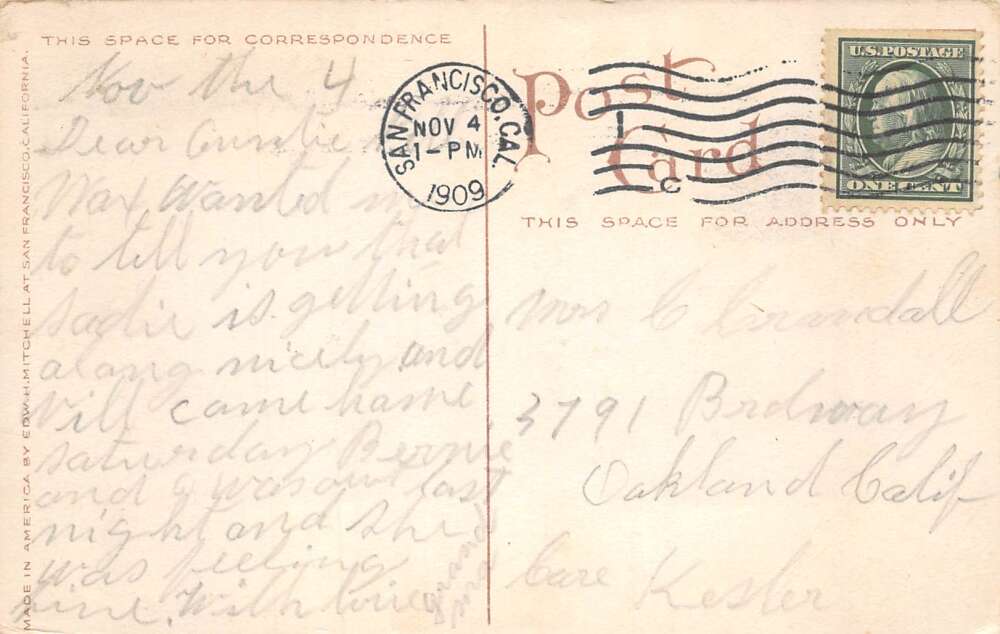 THIS SPACE FOR CORRESPONDENCE
Nov the 4
Dear Auntie
Max wanted me
to tell you that
Sadie is getting
along nicely and
will come home
saturday Bernie
and I was out last
night and she
was feeling
fine. With love
MADE IN AMERICA BY EDW. H. MITCHELL AT SAN FRANCISCO, CALIFORNIA.
SAN FRANCISCO, CAL.
NOV 4
1-PM
1909
Post
Card
U.S. POSTAGE
ONE CENT
THIS SPACE FOR ADDRESS ONLY
Mrs C Crandall
3791 Brdway
Oakland Calif
Care Kesler